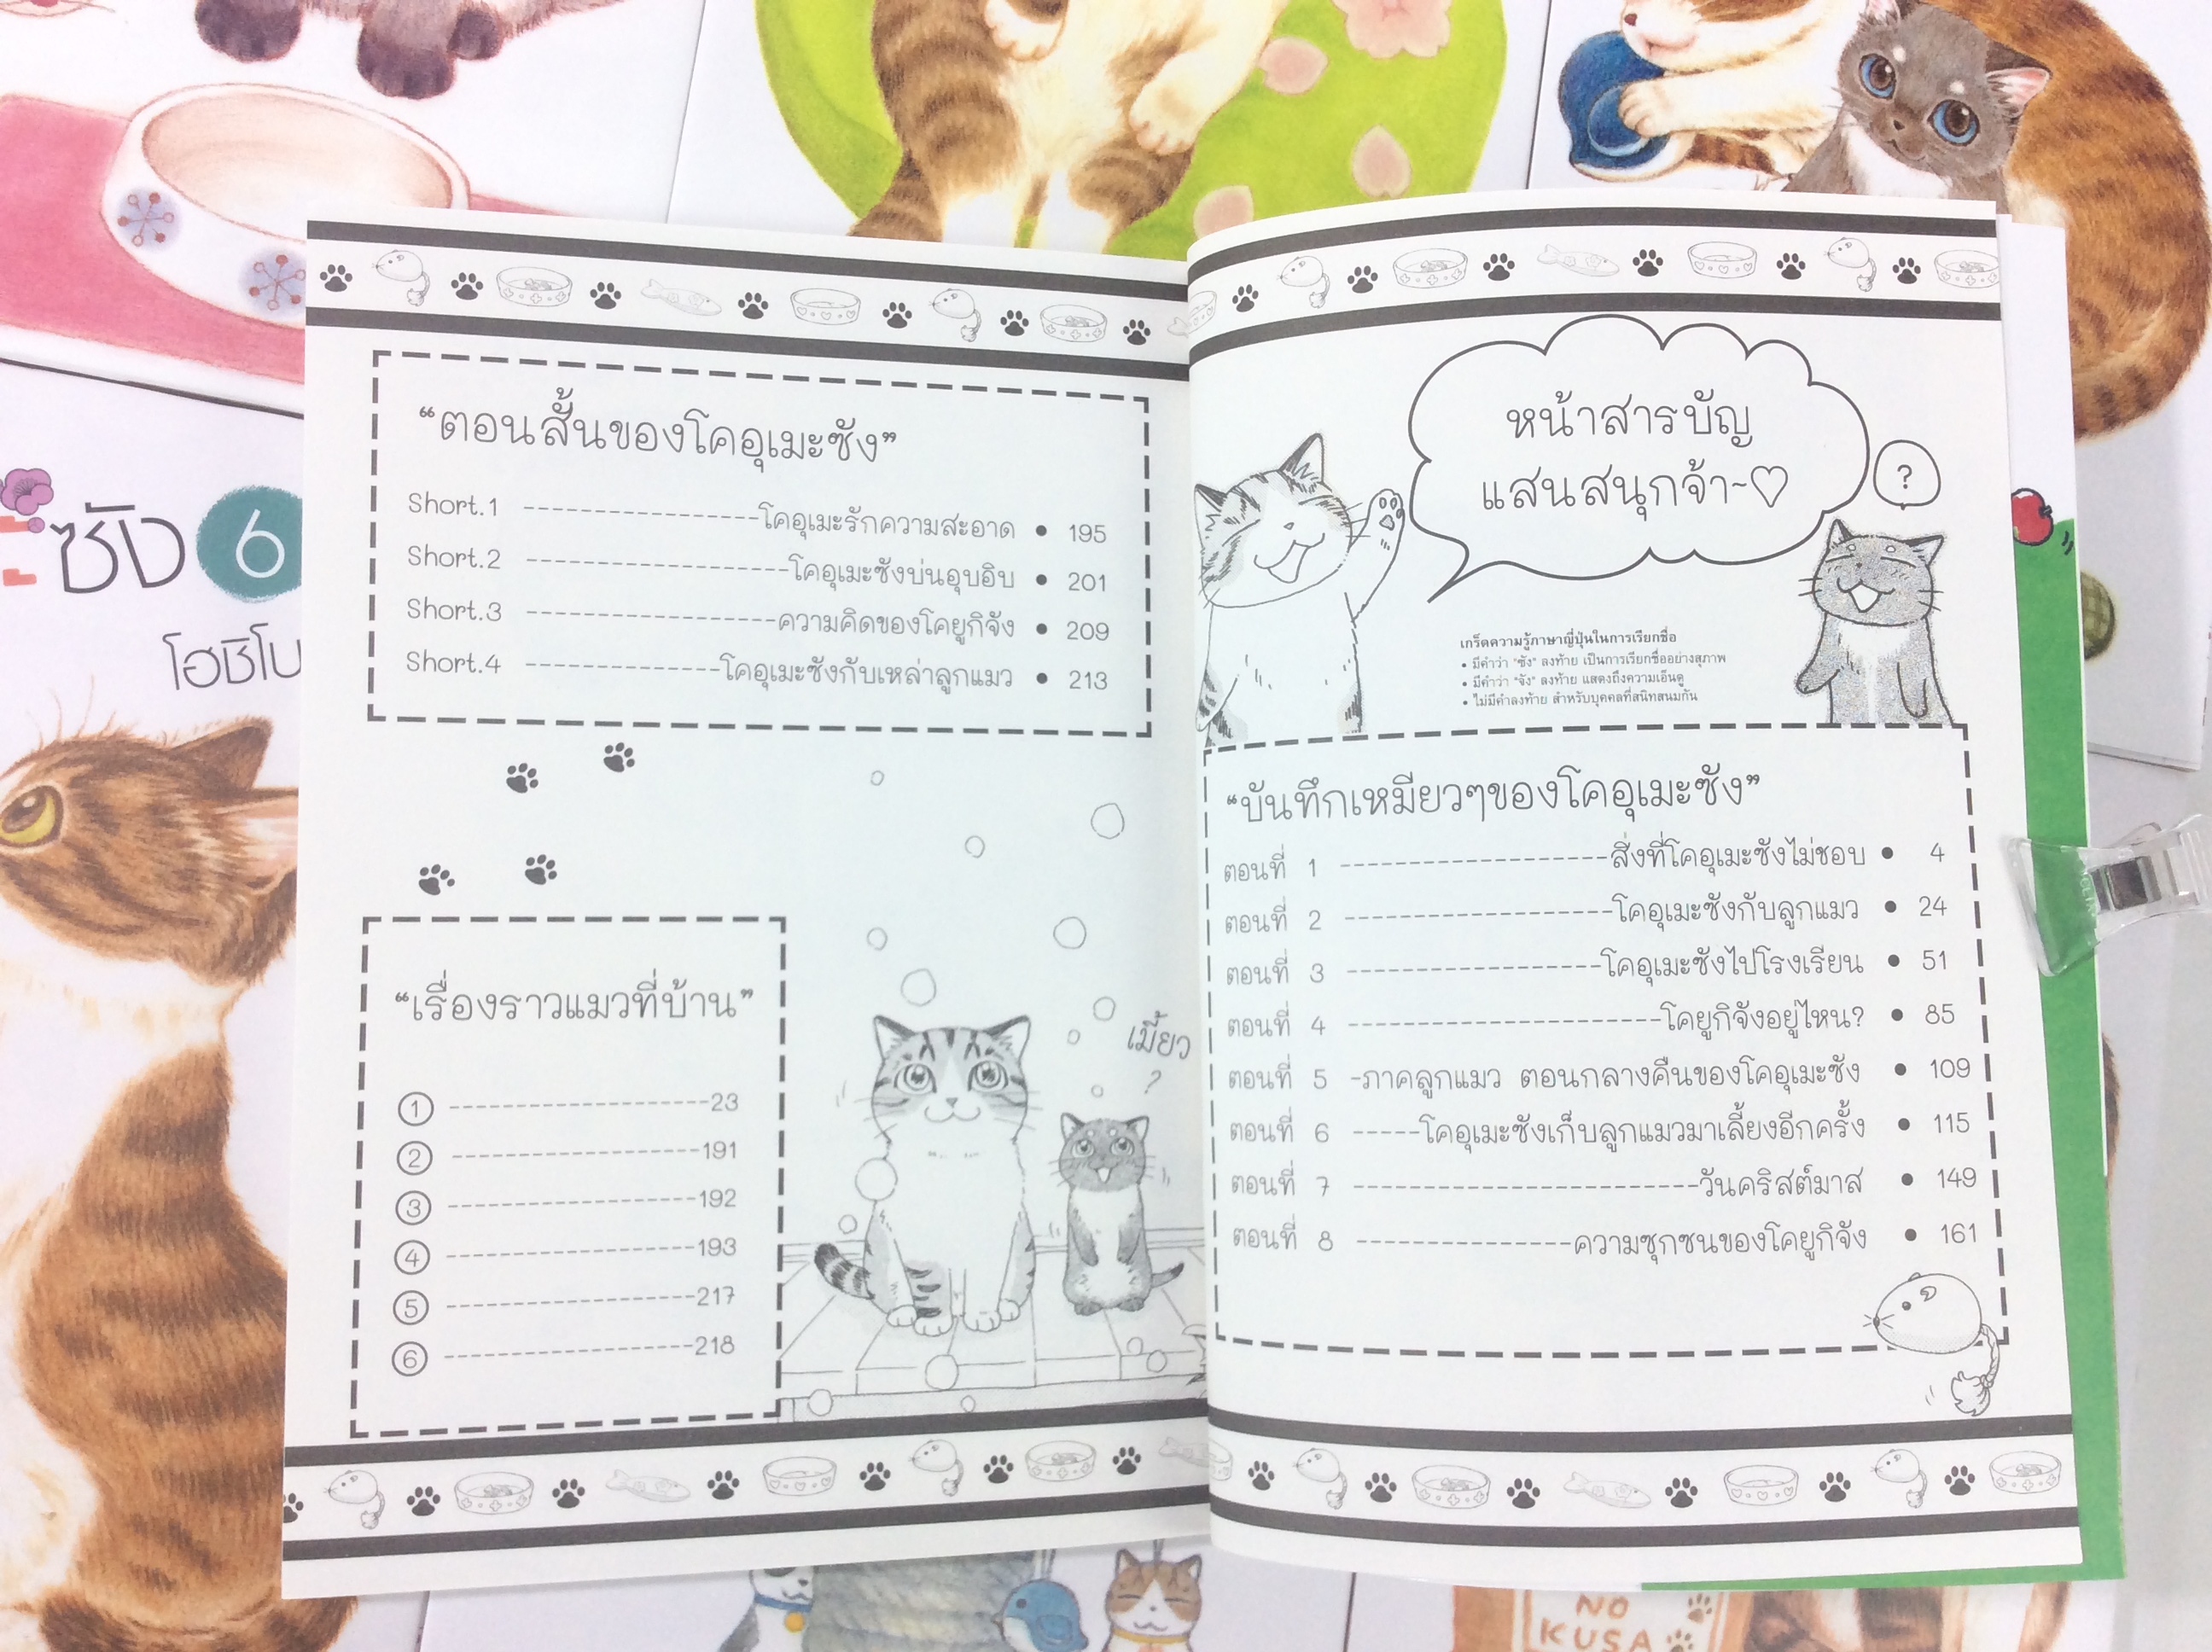 "ตอนสั้นของโคอุเมะซัง"
Short.1 โคอุเมะรักความสะอาด • 195
Short.2 โคอุเมะซังบ่นอุบอิบ • 201
Short.3 ความคิดของโคยูกิจัง • 209
Short.4 โคอุเมะซังกับเหล่าลูกแมว • 213
"เรื่องราวแมวที่บ้าน"
① 23
② 191
③ 192
④ 193
⑤ 217
⑥ 218
เมี้ยว
?
หน้าสารบัญ
แสนสนุกจ้า~♡
?
เกร็ดความรู้ภาษาญี่ปุ่นในการเรียกชื่อ
• มีคำว่า "ซัง" ลงท้าย เป็นการเรียกชื่ออย่างสุภาพ
• มีคำว่า "จัง" ลงท้าย แสดงถึงความเอ็นดู
• ไม่มีคำลงท้าย สำหรับบุคคลที่สนิทสนมกัน
"บันทึกเหมียวๆของโคอุเมะซัง"
ตอนที่ 1 สิ่งที่โคอุเมะซังไม่ชอบ • 4
ตอนที่ 2 โคอุเมะซังกับลูกแมว • 24
ตอนที่ 3 โคอุเมะซังไปโรงเรียน • 51
ตอนที่ 4 โคยูกิจังอยู่ไหน? • 85
ตอนที่ 5 -ภาคลูกแมว ตอนกลางคืนของโคอุเมะซัง • 109
ตอนที่ 6 โคอุเมะซังเก็บลูกแมวมาเลี้ยงอีกครั้ง • 115
ตอนที่ 7 วันคริสต์มาส • 149
ตอนที่ 8 ความซุกซนของโคยูกิจัง • 161
ซัง 6
โฮชิโน
NO
KUSA